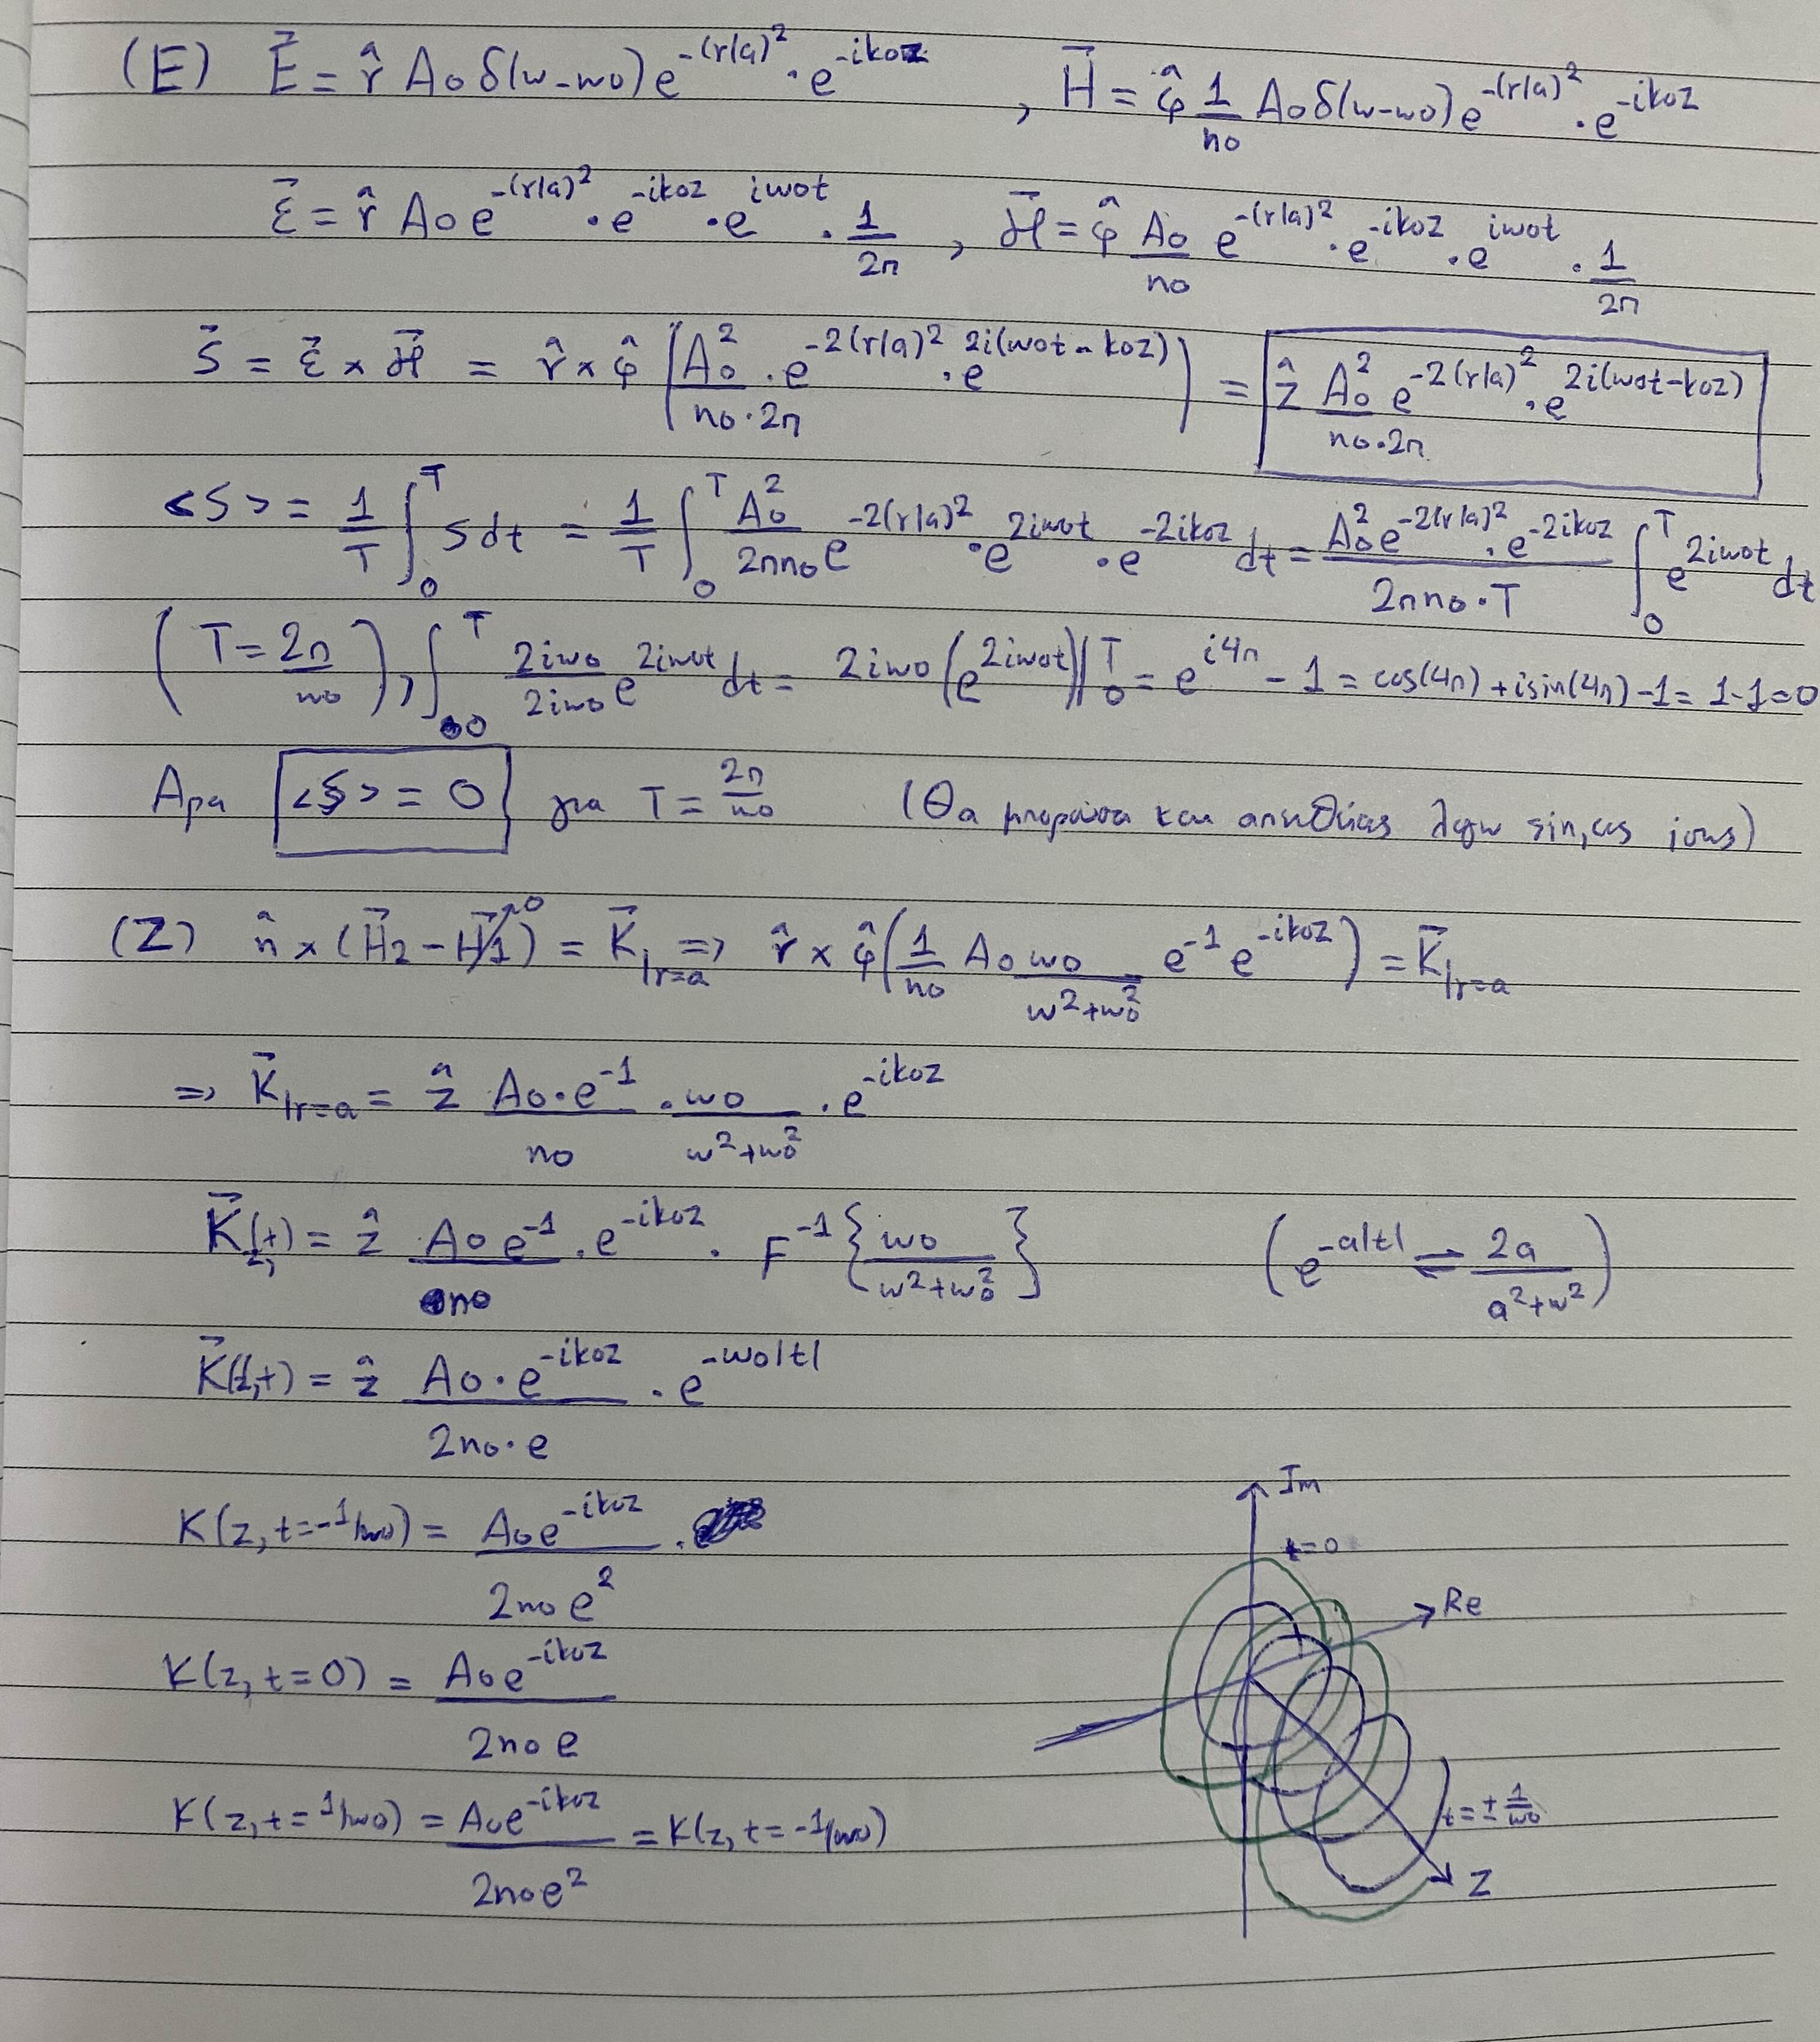 (E) E⃗ = r̂ A₀ δ(ω-ω₀) e^{-(r/a)²} · e^{-ik₀z} , H⃗ = φ̂ 1/n₀ A₀ δ(ω-ω₀) e^{-(r/a)²} · e^{-ik₀z}
ℰ⃗ = r̂ A₀ e^{-(r/a)²} · e^{-ik₀z} · e^{iω₀t} · 1/2π , ℋ⃗ = φ̂ A₀/n₀ e^{-(r/a)²} · e^{-ik₀z} · e^{iω₀t} · 1/2π
S⃗ = ℰ⃗ × ℋ⃗ = r̂ × φ̂ (A₀²/(n₀·2π) · e^{-2(r/a)²} · e^{2i(ω₀t-k₀z)}) = ẑ A₀²/(n₀·2π) e^{-2(r/a)²} · e^{2i(ω₀t-k₀z)}
<S> = 1/T ∫₀ᵀ S dt = 1/T ∫₀ᵀ A₀²/(2πn₀) e^{-2(r/a)²} · e^{2iω₀t} · e^{-2ik₀z} dt = A₀² e^{-2(r/a)²} · e^{-2ik₀z}/(2πn₀·T) ∫₀ᵀ e^{2iω₀t} dt
(T = 2π/ω₀), ∫₀ᵀ 2iω₀/2iω₀ e^{2iω₀t} dt = 2iω₀ (e^{2iω₀t})|₀ᵀ = e^{i4π} - 1 = cos(4π) + i sin(4π) - 1 = 1-1 = 0
Αρα <S> = 0 για T = 2π/ω₀ (Θα μπορούσα και απευθείας λόγω sin, cos ίσως)
(Z) n̂ × (H⃗₂ - H⃗₁→0) = K⃗|r=a => r̂ × φ̂ (1/n₀ A₀ ω₀/(ω²+ω₀²) e^{-1} e^{-ik₀z}) = K⃗|r=a
=> K⃗|r=a = ẑ A₀·e^{-1}/n₀ · ω₀/(ω²+ω₀²) · e^{-ik₀z}
K⃗(z,t) = ẑ A₀ e^{-1}/n₀ · e^{-ik₀z} · F^{-1}{ω₀/(ω²+ω₀²)} (e^{-a|t|} ⇌ 2a/(a²+ω²))
K⃗(z,t) = ẑ A₀·e^{-ik₀z}/(2n₀·e) · e^{-ω₀|t|}
K(z, t=-1/ω₀) = A₀e^{-ik₀z}/(2n₀e²) ·
K(z, t=0) = A₀e^{-ik₀z}/(2n₀e)
K(z, t=1/ω₀) = A₀e^{-ik₀z}/(2n₀e²) = K(z, t=-1/ω₀)
Im
t=0
Re
t=±1/ω₀
Z